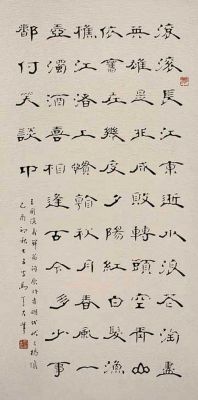 滾滾長江東逝水浪花淘盡
英雄是非成敗轉頭空青山
依舊在幾度夕陽紅白髮漁
樵江渚上慣看秋月春風一
壺濁酒喜相逢古今多少事
都付笑談中
三國演義